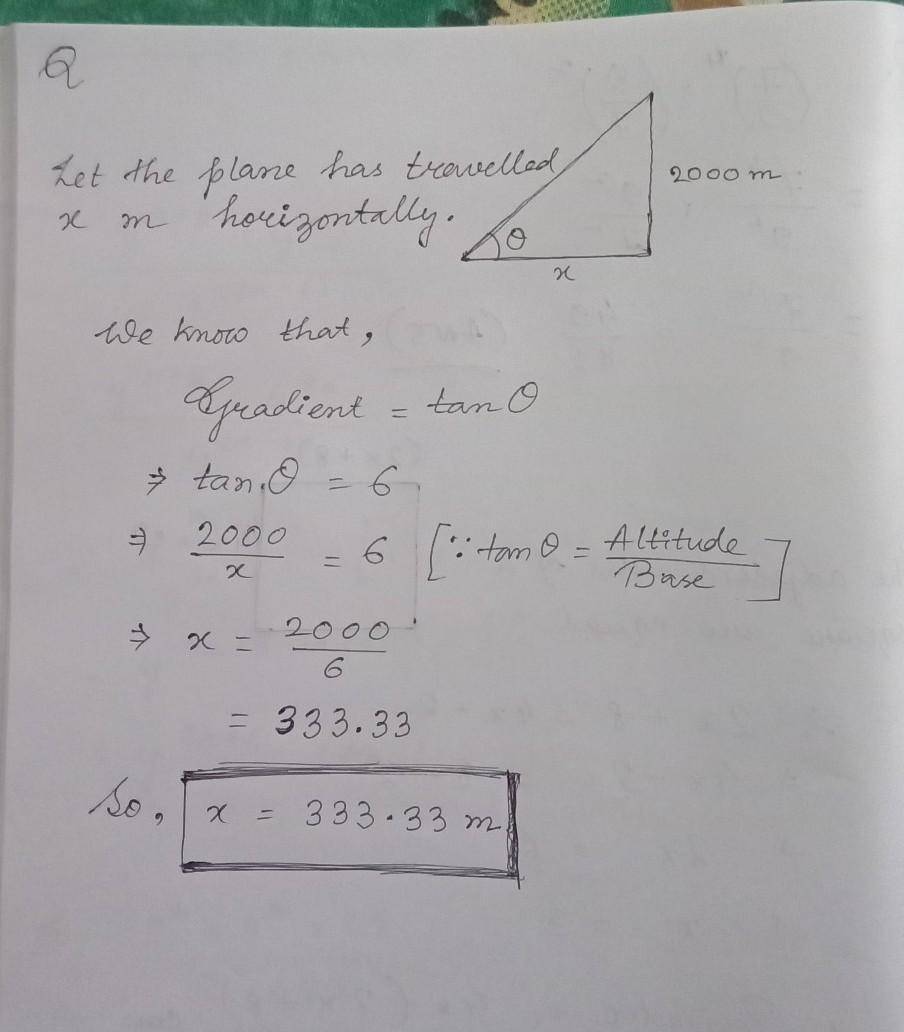 Q
Let the plane has travelled
x m horizontally.
2000 m
θ
x
We know that,
Gradient = tan θ
⇒ tan θ = 6
⇒ 2000/x = 6 [∵ tan θ = Altitude/Base]
⇒ x = 2000/6
= 333.33
So, x = 333.33 m